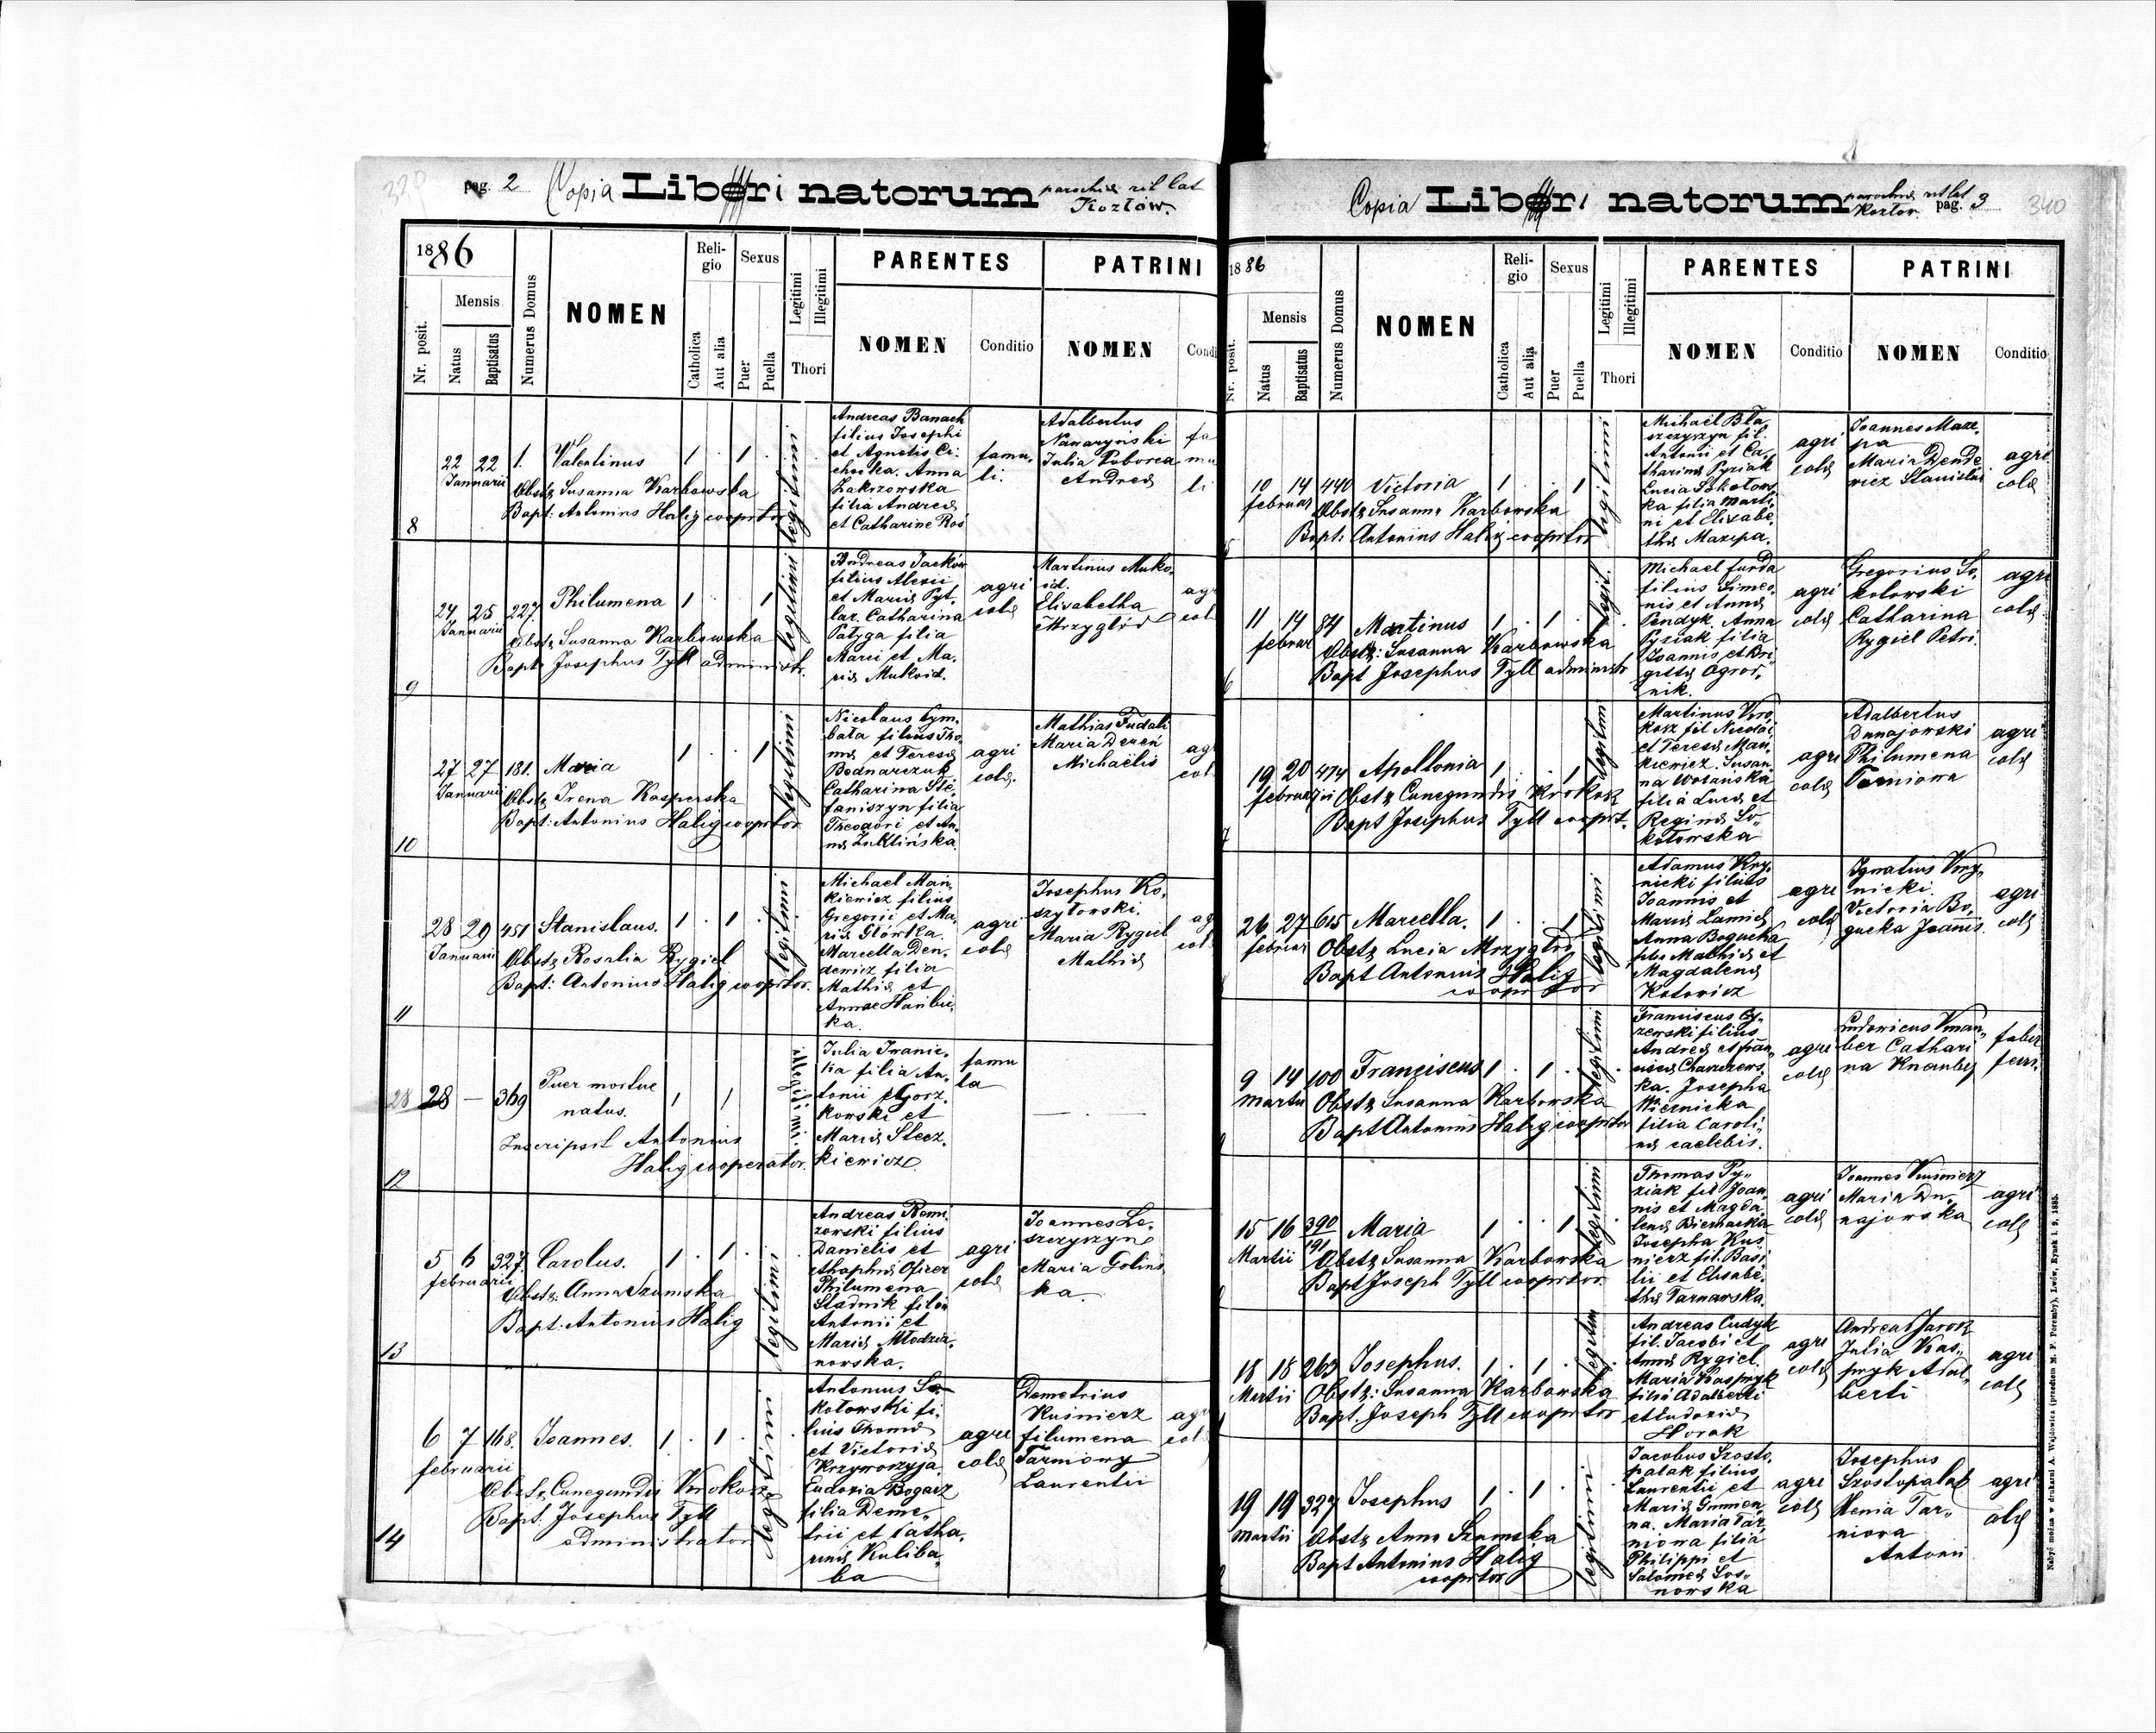 pag. 2 Copia Liberi natorum parochiæ rit lat
Kozłów.
1886
Nr. posit.
Mensis
Natus
Baptisatus
Numerus Domus
NOMEN
Religio
Catholica
Aut alia
Sexus
Puer
Puella
Legitimi
Illegitimi
Thori
PARENTES
NOMEN
Conditio
PATRINI
NOMEN
Condi
8
22 22 1. Valentinus 1 . 1 .
Januarii
Obst: Susanna Karbowska
Bapt: Antonius Halig cooprtor
legitimi
Andreas Banach
filius Josephi
et Agnetis Ci-
choska. Anna
Zakrzowska
filia Andreæ
et Catharinæ Roś
famu-
li.
Adalbertus
Nawaryński
Julia Poborca
Andreæ
fa
mu
li
9
24 25 227. Philumena 1 . 1
Januarii
Obst: Susanna Karbowska
Bapt: Josephus Tyll administr.
legitimi
Andreas Jacków
filius Alexii
et Mariæ Pyt-
lar. Catharina
Patyga filia
Marci et Ma-
riæ Mukoid.
agri
colæ
Martinus Muko-
id.
Elisabetha
Mrzygłód
agr
col
10
27 27 181. Maria 1 . . 1
Januarii
Obst: Irena Kasperska
Bapt: Antonius Halig cooprtor
legitimi
Nicolaus Cym-
bała filius Tho-
mæ et Teresæ
Bednarczuk
Catharina Ste-
faniszyn filia
Theodori et An-
næ Lublińska.
agri
colæ.
Mathias Fudali
Maria Dereń
Michaëlis
agr
col
11
28 29 451 Stanislaus. 1 . 1 .
Januarii
Obst: Rosalia Rygiel
Bapt: Antonius Halig cooprtor.
legitimi
Michael Man-
kiewicz filius
Gregorii et Ma-
riæ Główka.
Marcella Den-
dewicz filia
Mathiæ et
Annae Hanbu-
ka.
agri
colæ
Josephus Ko-
szytorski.
Maria Rygiel
Mathiæ
ag
col
12
28 28 — 369 Puer mortue
natus. 1 1
Inscripsit Antonius
Halig cooperator.
illegitimi.
Julia Iwanic-
ka filia An-
tonii et Gorz-
kowski et
Mariæ Stecz-
kiewicz.
famu
la
— . —
13
5 6 327. Carolus. 1 . 1 .
februarii
Obst: Anna Szumska
Bapt: Antonius Halig
legitimi
Andreas Remi-
zowski filius
Danielis et
Agaphiæ Oficer
Philumena
Sladnik filia
Antonii et
Mariæ Młodzia-
nowska.
agri
colæ
Joannes Le-
szczyszyn
Maria Golins
ka.
14
6 7 168. Joannes. 1 . 1 .
februarii
Obst: Cunegundis Krokosz
Bapt. Josephus Tyll
administrator
legitimi
Antonius So-
kołowski fi-
lius Thomæ
et Victoriæ
Krzyworzyja.
Eudoxia Bogacz
filia Deme-
trii et Catha-
rinæ Kuliba-
ba
agri
colæ
Demetrius
Kuśnierz
filumena
Tarniowy
Laurentii
agr
col
Copia Liberi natorum parochiæ rit lat
Kozłow. pag. 3 340
1886
Nr. posit.
Mensis
Natus
Baptisatus
Numerus Domus
NOMEN
Religio
Catholica
Aut alia
Sexus
Puer
Puella
Legitimi
Illegitimi
Thori
PARENTES
NOMEN
Conditio
PATRINI
NOMEN
Conditio
10 14 440 Victoria 1 . . 1
februar
Obst: Susanna Karbowska
Bapt: Antonius Halig cooprtor
legitimi
Michaël Bła-
szczyszyn fil.
Antonii et Ca-
tharinæ Pyziak
Lucia Sokołows
ka filia Marti-
ni et Elisabe-
thæ Mazepa.
agri
colæ
Joannes Maze-
pa
Maria Dende
wicz Stanislai
agri
colæ
11 14 84 Martinus 1 . 1 .
februar
Obst: Susanna Karbowska
Bapt Josephus Tyll administr
legit.
Michael furda
filius Simeo-
nis et Annæ
Pendyk. Anna
Pyziak filia
Joannis et Bri-
gittæ Ogrod-
nik.
agri
colæ
Gregorius So-
kołowski
Catharina
Rygiel Petri.
agri
colæ
19 20 474 Apollonia 1 . . 1
februarii
Obst: Cunegundis Krokosz
Bapt Josephus Tyll cooprt.
legitimi
Martinus Kro-
kosz fil Nicolai
et Teresæ Man-
kiewicz. Susan-
na Wołańska
filia Lucæ et
Reginæ So-
kołowska
agri
colæ
Adalbertus
Dunajowski
Philumena
Tarniowa
agri
colæ
26 27 615 Marcella. 1 . . 1
februar
Obst: Lucia Mrzygłod
Bapt Antonius Halig
cooprtor
legitimi
Adamus Kry-
nicki filius
Joannis et
Mariæ Lamich
Anna Bogucka
filia Mathiæ et
Magdalenæ
Kotowicz
agri
colæ
Ignatius Kry-
nicki.
Victoria Bo-
gucka Joanis.
agri
colæ
9 14 100 Franciscus 1 . 1 .
Martii
Obst: Susanna Karbowska
Bapt Antonius Halig cooprtor
legitimi
Franciscus Cy-
zewski filius
Andreæ et fran-
ciscæ
ka. Josepha
Wiernicka
filia Caroli-
næ caelebis.
agri
colæ
Ludovicus
ber Cathari
na
faber
ferr.
15 16 390 Maria 1 . . 1
191
Martii
Obst: Susanna Karbowska
Bapt Joseph Tyll cooprtor.
legitimi
Thomas Py-
ziak fil Joan-
nis et Magda-
lenæ Biernacka
Josepha Kuś
nierz fil. Basi-
lii et Elisabe-
thæ Tarnawska.
agri
colæ
Joannes Kusmierz
Maria Du-
najowska
agri
colæ
18 18 263 Josephus. 1 . 1 .
Martii
Obst: Susanna Karbowska
Bapt. Joseph Tyll cooprtor
legitim
Andreas Cudyk
fil. Jacobi et
Annæ Rygiel.
Maria Kaspryk
filia Adalberti
et Eudoxiæ
Horak
agri
colæ
Andreas Jarosz
Julia Kas-
pryk Adal-
berti
agri
colæ
19 19 327 Josephus 1 . 1 .
Martii
Obst: Anna Szumska
Bapt Antonius Halig
cooprtor
legitimi
Jacobus Szosto-
palak filius
Laurentii et
Mariæ Gumien
na. Maria Tar
niowa filia
Philippi et
Salomeæ Sos-
nowska
agri
colæ
Josephus
Szostopalak
Xenia Tar-
niowa
Antonii
agri
colæ
Nabyć można w drukarni A. Wajdowicza (przedtem M. F. Poremby), Lwów, Rynek l. 9. 1885.